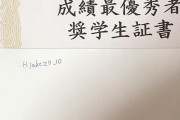 成績最優秀者
奨学生証書